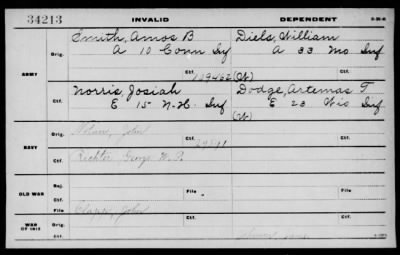 34213 INVALID DEPENDENT
Smith, Amos B Diels, William
Orig. A 10 Conn Inf A 33 Mo Inf
ARMY Ctf. 129462 (W)
Norris, Josiah Dodge, Artemas T
Ctf. E 15 N-H. Inf E 23 Wis Inf
(W)
Orig. John
NAVY Ctf.
Richter George W. P.
OLD WAR Rej. Ctf.
File File
WAR OF 1812 Orig. Clapp, John Ctf.
Ctf.